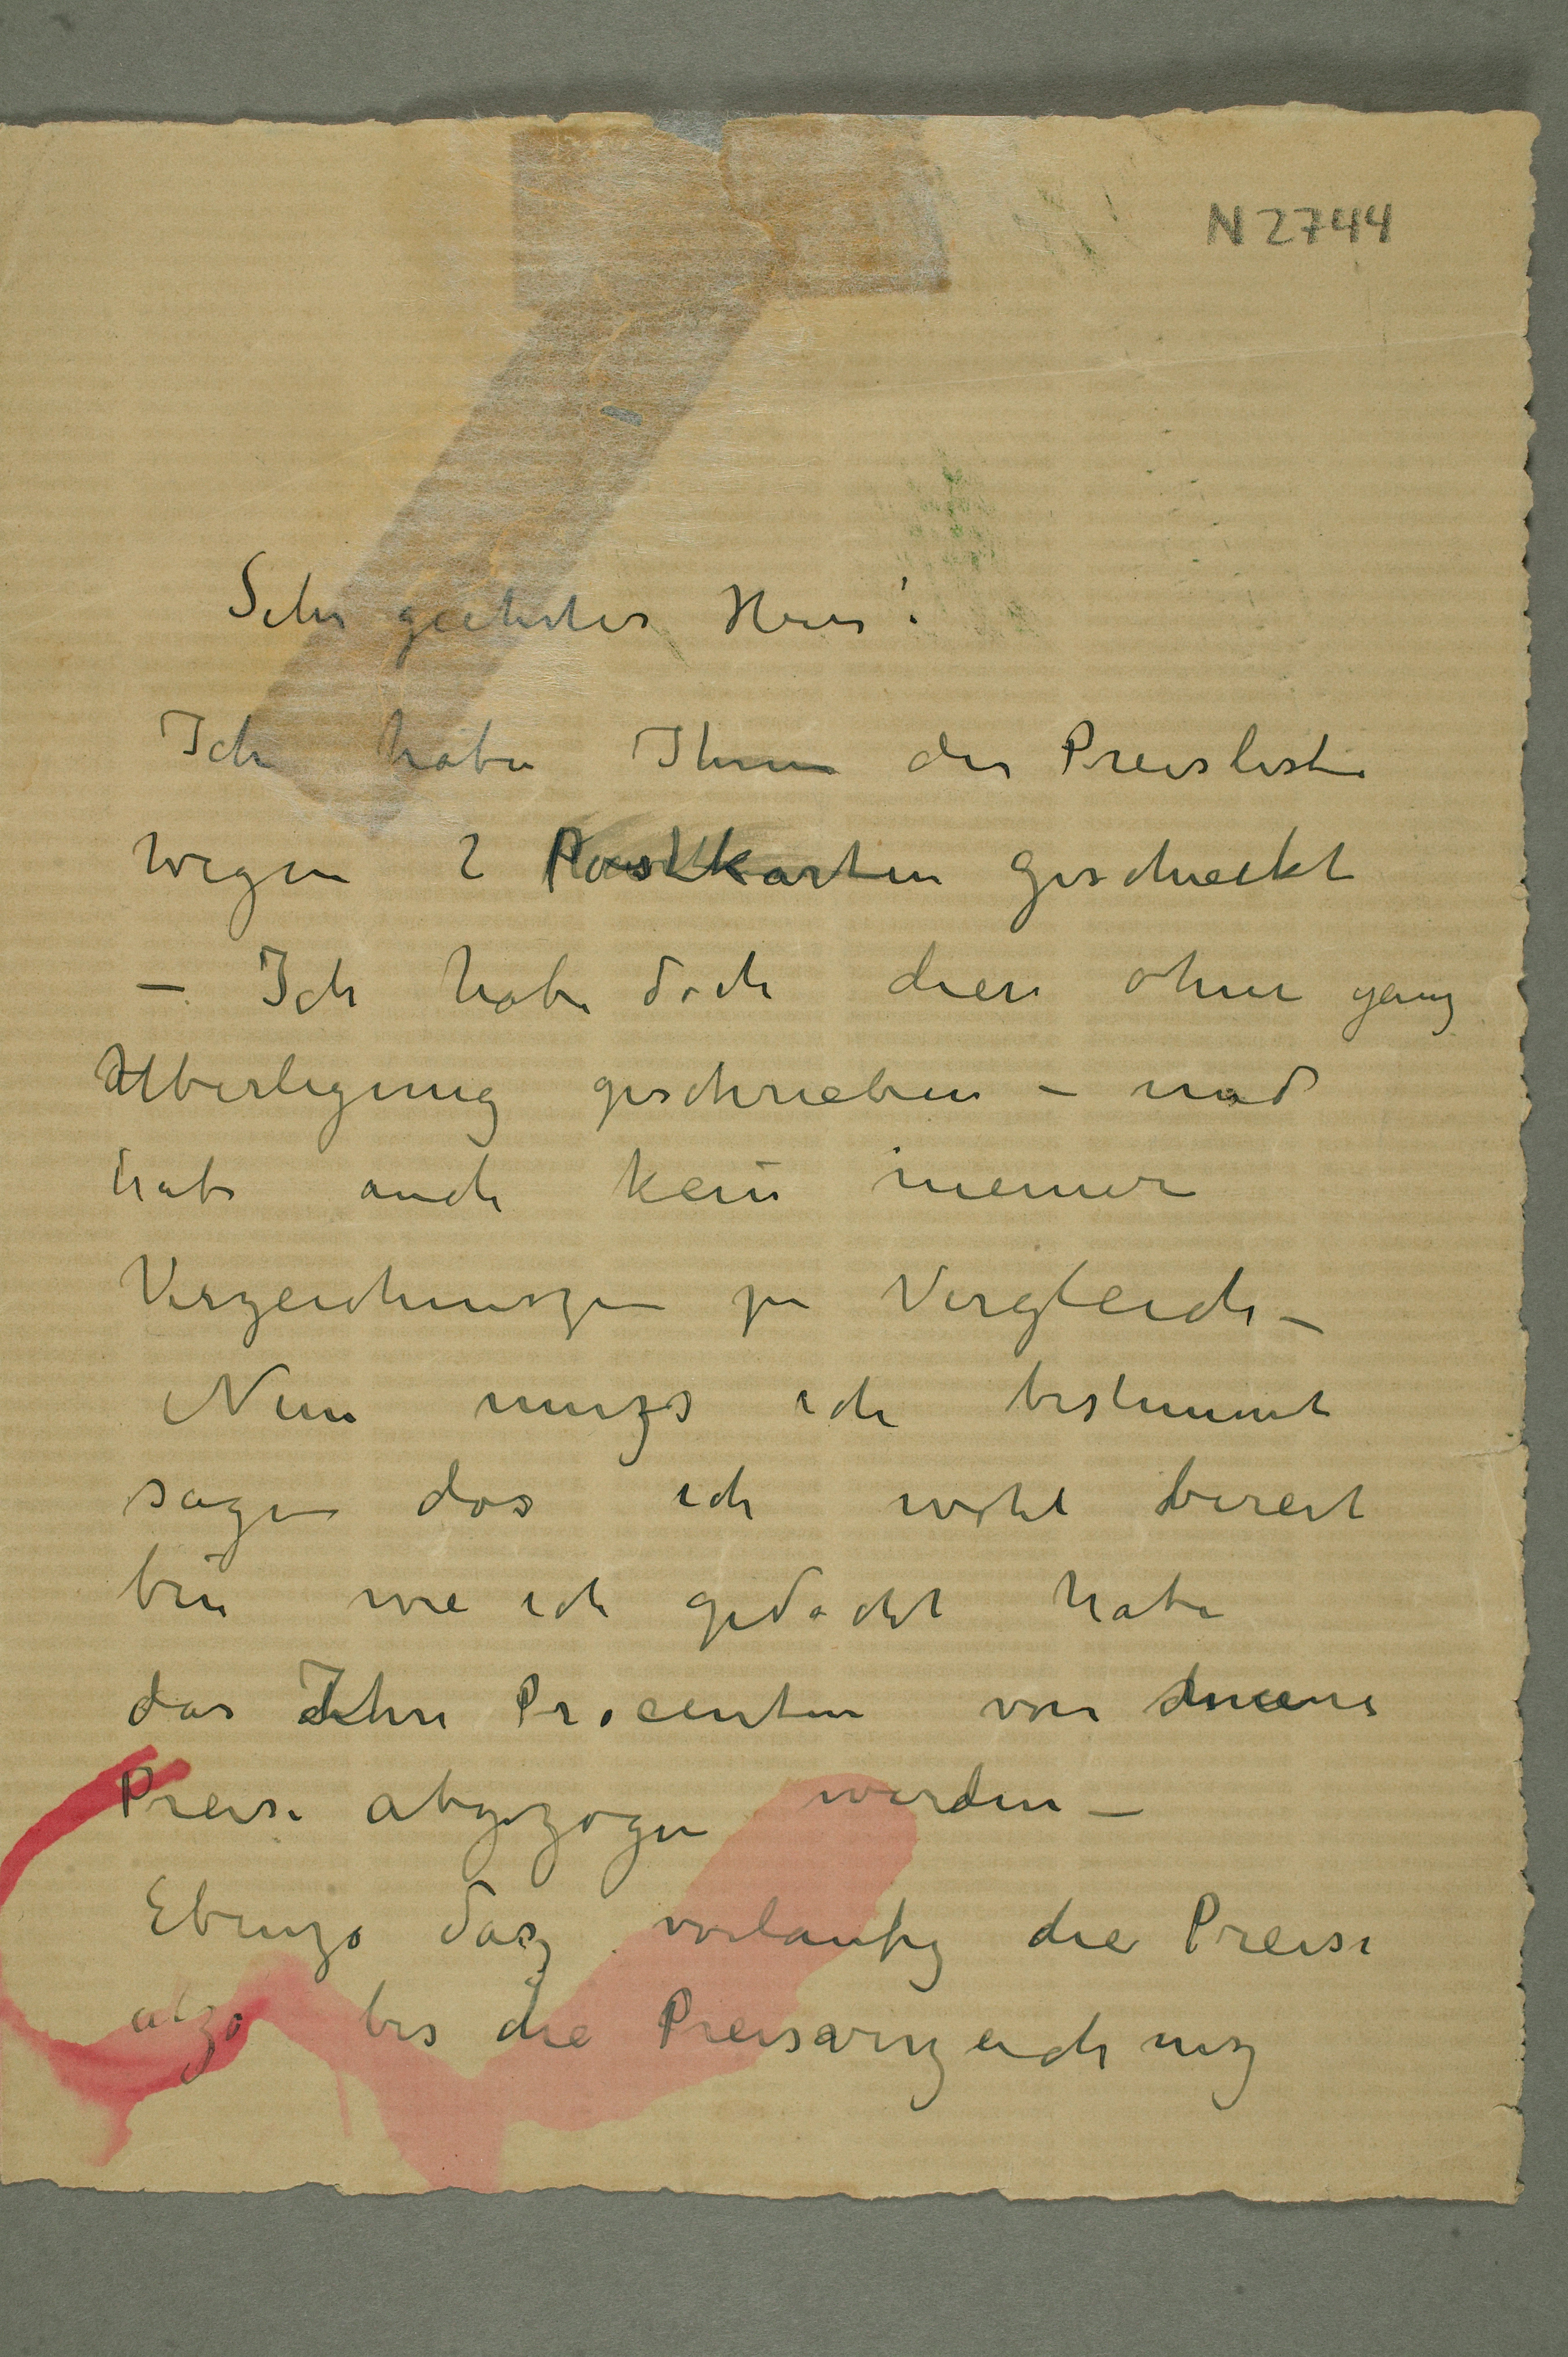 N 2744
Sehr geehrter Herr!
Ich habe Ihnen der Preisliste
wegen 2 Postkarten geschickt
– Ich habe doch diese ohne ganz
Uberlegung geschrieben – und
habe auch kein meiner
Verzeichniszen zu Vergleich –
Nun muzs ich bestimmt
sagen das ich wohl bereit
bin wie ich gedacht habe
das Ihre Procenten von meine
Preise abgezogen werden –
Ebenzo dasz vorlaufig die Preise
alzo bis die Preisverzeichnisz